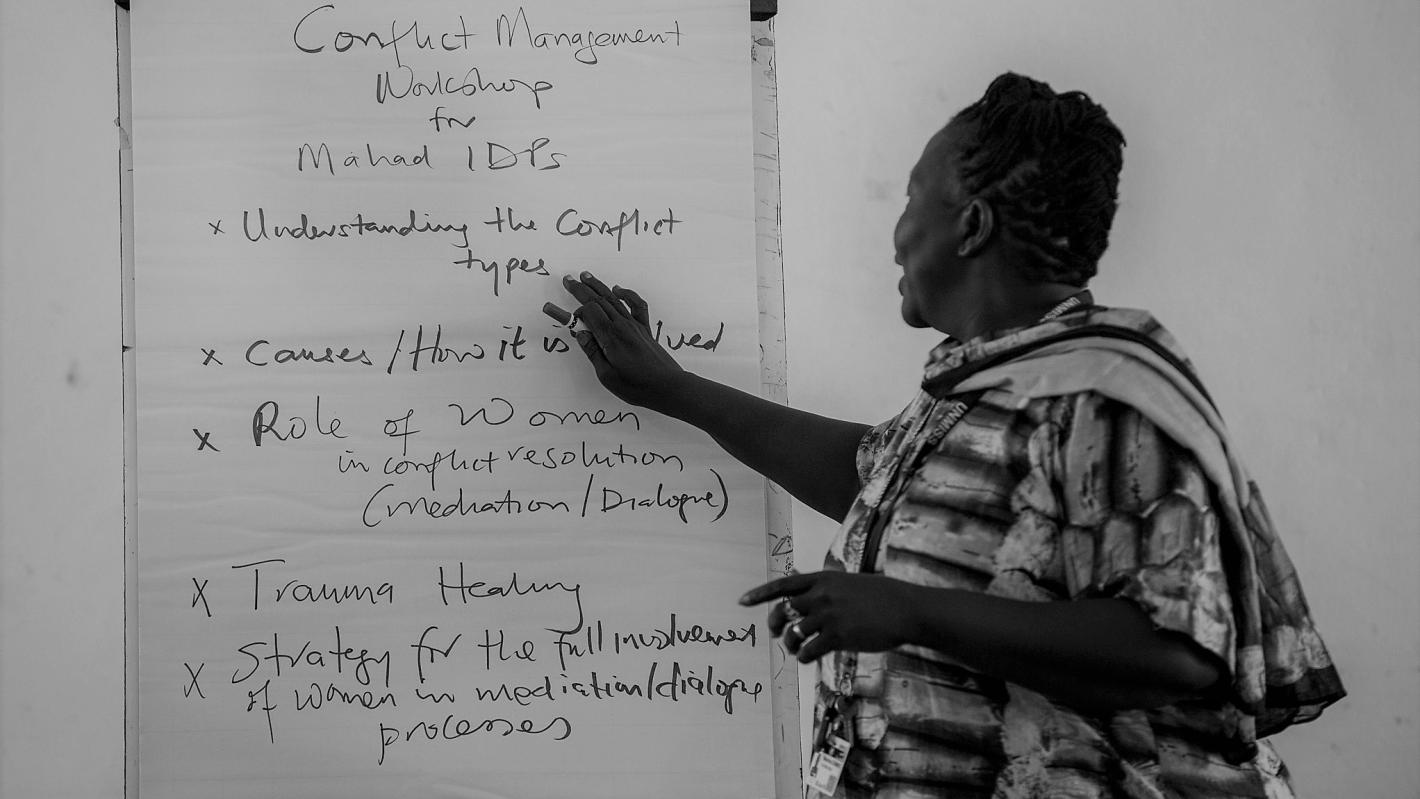 Conflict Management
Workshop
for
Mahad IDPs
x Understanding the Conflict
types
x Causes / How it is lved
x Role of Women
in conflict resolution
(Mediation / Dialogue)
x Trauma Healing
x Strategy for the full involvement
of women in mediation/dialogue
processes
UNMISS
UNMISS